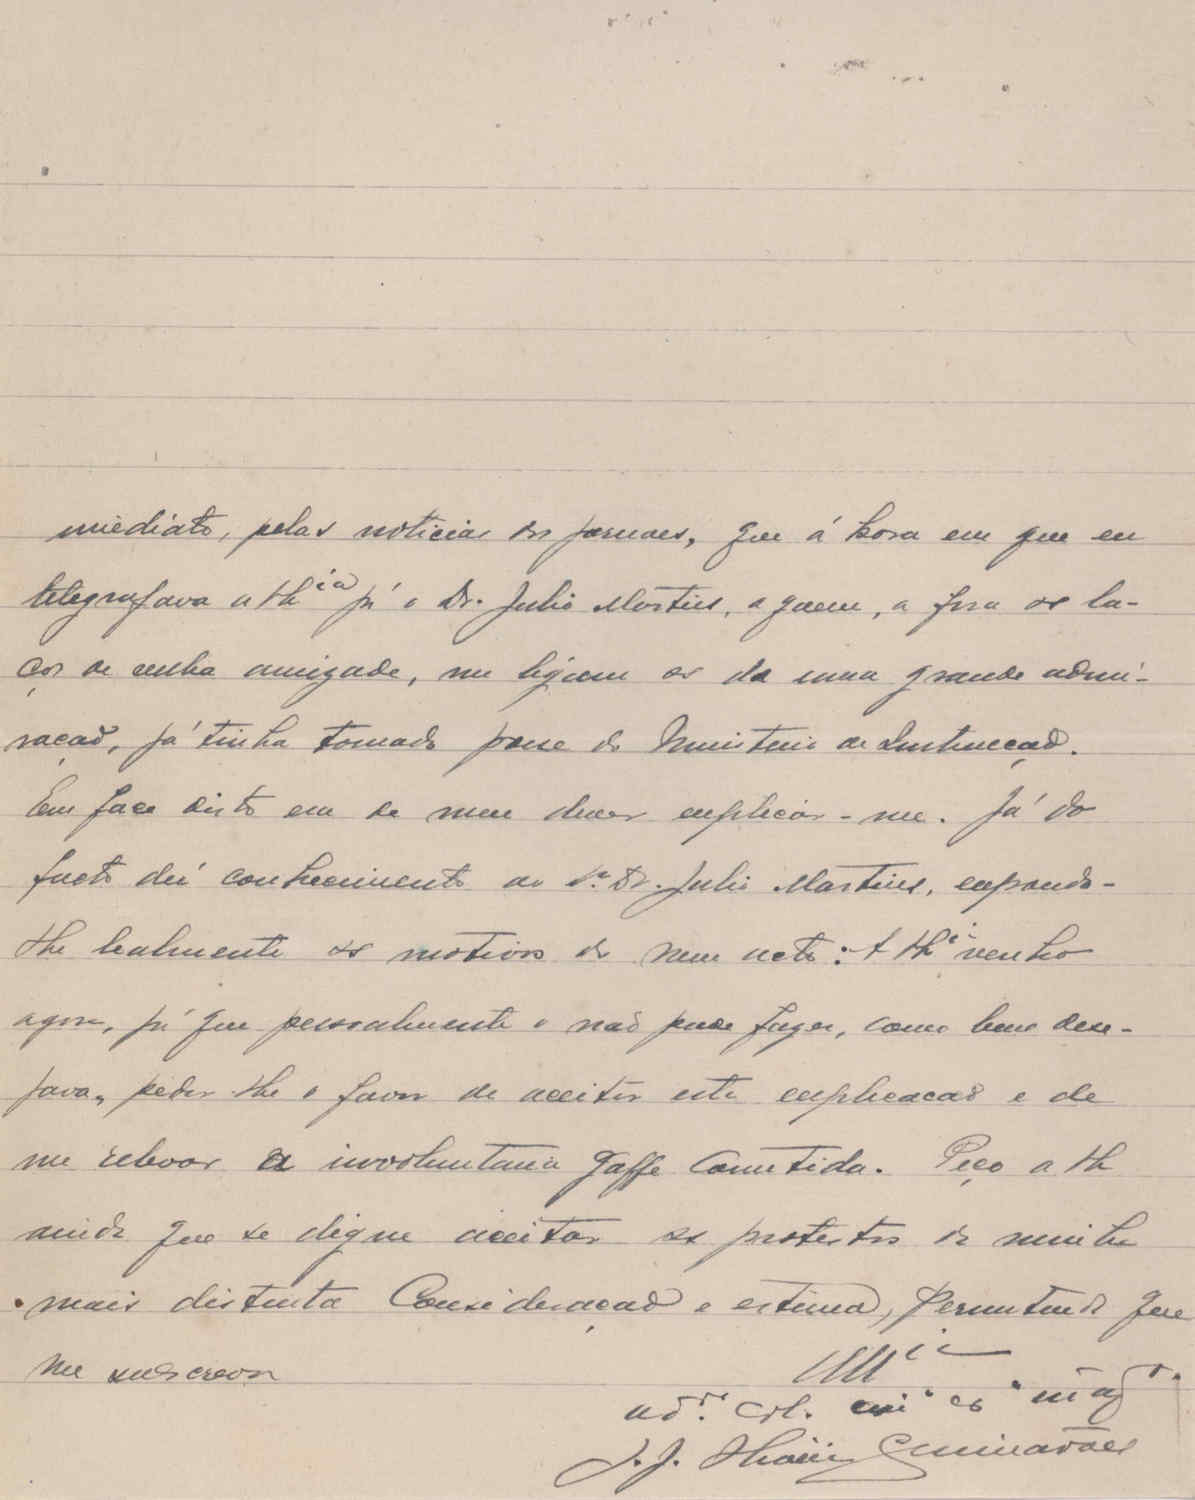 imediato, pelas noticias dos jornaes, que á hora em que eu
telegrafava a já o Dr. Julio Martins, a quem, a fora os la-
ços de velha amizade, me ligam os da uma grande admi-
ração, já tinha tomado posse do Ministerio de Instrucção.
Em face disto era de meu dever explicar-me. Já do
facto dei conhecimento ao Sr. Dr. Julio Martins, expondo-
lhe lealmente os motivos do meu acto: A venho
agora, já que pessoalmente o não pude fazer, como bem dese-
java, pedir-lhe o favor de aceitar esta explicação e de
me relevar a involuntaria gaffe cometida. Peço a
ainda que se digne aceitar os protestos da minha
mais distinta Consideração e estima, permitindo que
me subscreva
adr. col.
J. J. Guimarães